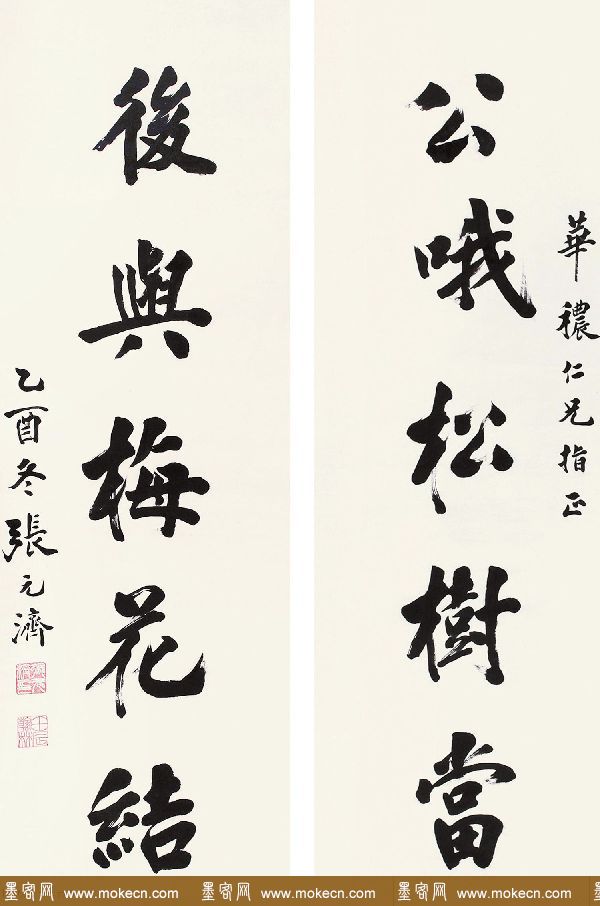 華穠仁兄指正
公哦松樹當
後與梅花結
乙酉冬張元濟
墨客网 www.mokecn.com 墨客网 www.mokecn.com 墨客网 www.mokecn.com 墨客网 www.mokecn.com